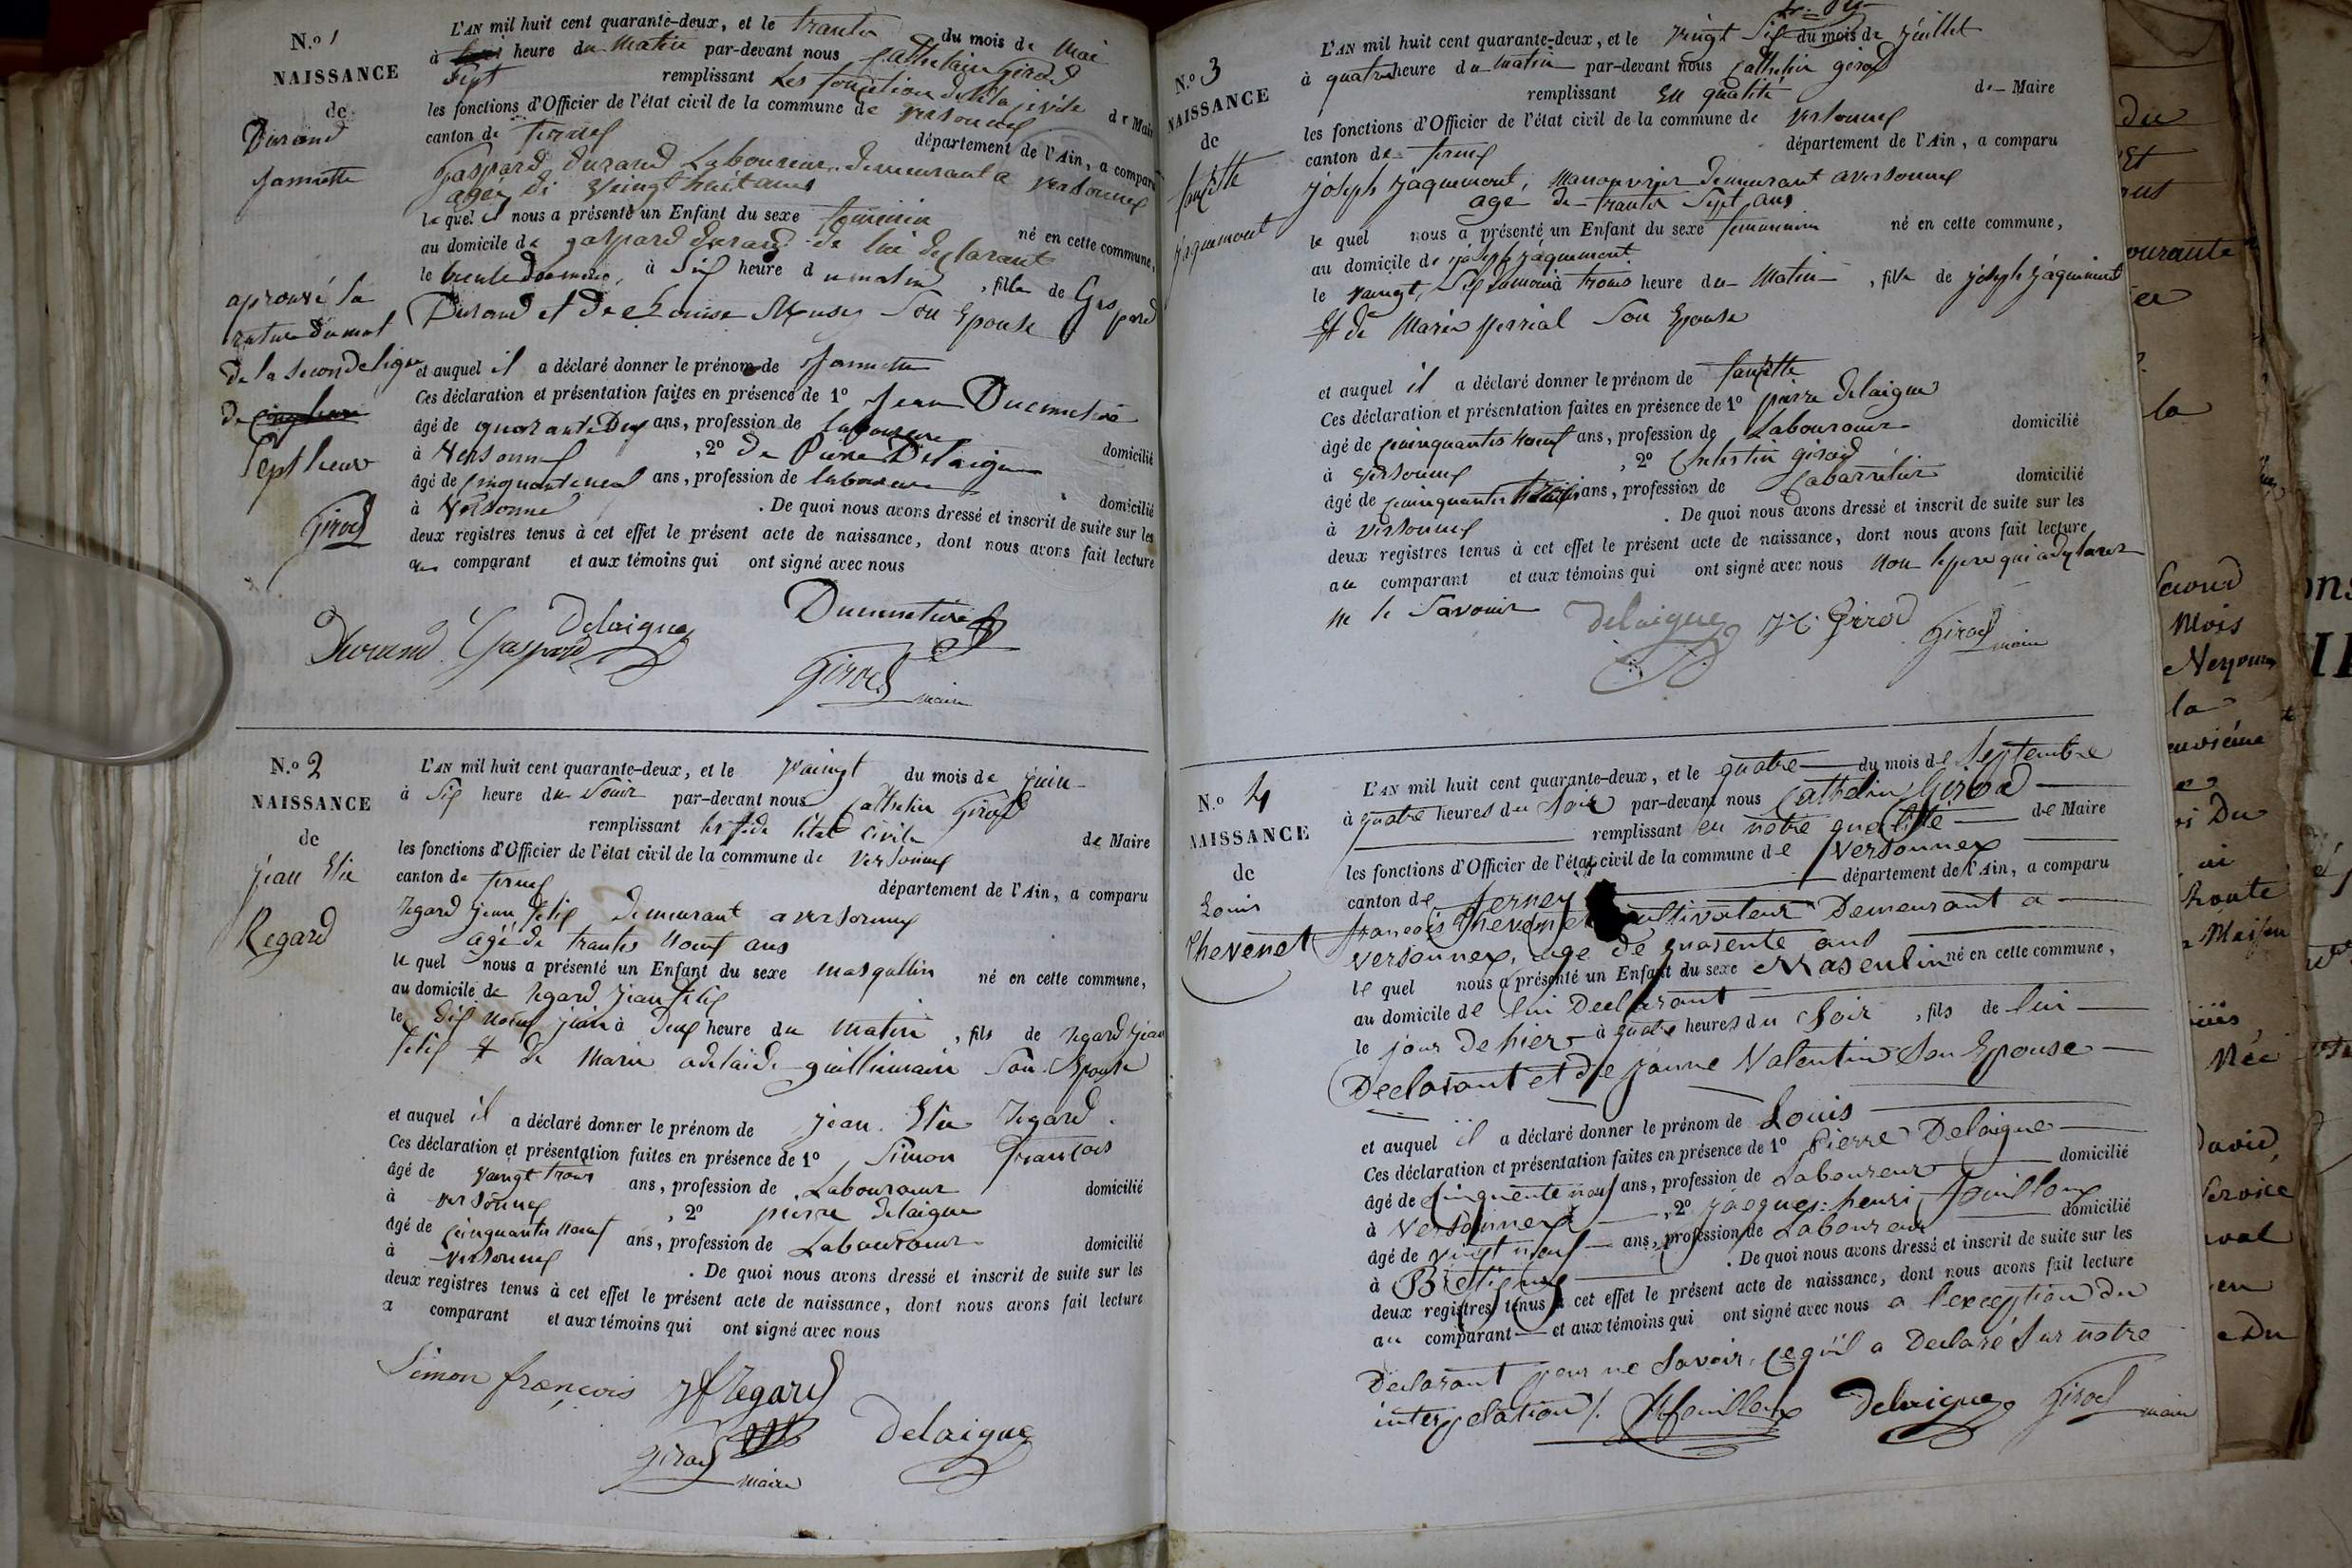 N.o 1
NAISSANCE
de
Durand
Jannette
aprouvé la
rature du mot
de la seconde ligne
de
Sept heure
Girod
L'AN mil huit cent quarante-deux, et le trante du mois de Mai
à heure du Matin par-devant nous Cathelain Girod
Sept remplissant les fonction de l'éta civile de Maire
les fonctions d'Officier de l'état civil de la commune de versonnex
canton de fernex département de l'Ain, a comparu
Gaspard Durand Laboureur demeurant a versonnex
agée de vingt huit ans
lequel nous a présenté un Enfant du sexe feminin né en cette commune,
au domicile de gaspard durand de lui declarant
le à Six heure du matin, fille de Gaspard
Durand et de Louise Son Epouse
et auquel il a déclaré donner le prénom de Jannette
Ces déclaration et présentation faites en présence de 1o Jean Dumetier
âgé de quarante Deux ans, profession de laboureur domicilié
à Versonnex, 2o de Pierre Delaigue
âgé de cinquante neuf ans, profession de laboureur domicilié
à Versonnex. De quoi nous avons dressé et inscrit de suite sur les
deux registres tenus à cet effet le présent acte de naissance, dont nous avons fait lecture
au comparant et aux témoins qui ont signé avec nous
Durand Gaspard Delaigue
Girod maire
N.o 2
NAISSANCE
de
Jean Elie
Regard
L'AN mil huit cent quarante-deux, et le vaingt du mois de juin
à Six heure du Soir par-devant nous Cathelin Girod
remplissant civile de Maire
les fonctions d'Officier de l'état civil de la commune de Versonnex
canton de fernex département de l'Ain, a comparu
Regard jean felix demeurant a versonnex
agé de trante nœuf ans
le quel nous a présenté un Enfant du sexe masqullin né en cette commune,
au domicile de regard jean felix
le Dix nœuf juin à Deux heure du matin, fils de regard jean
felix et de Marie adelaide guillimain Son Epouse
et auquel il a déclaré donner le prénom de jean Elie regard
Ces déclaration et présentation faites en présence de 1o Simon francois
âgé de vaingt trois ans, profession de Labourœur domicilié
à versonnex, 2o pierre delaigue
âgé de cinquante nœuf ans, profession de Labourœur domicilié
à versonnex. De quoi nous avons dressé et inscrit de suite sur les
deux registres tenus à cet effet le présent acte de naissance, dont nous avons fait lecture
a comparant et aux témoins qui ont signé avec nous
Simon françois jf Regard
Girod maire Delaigue
N.o 3
NAISSANCE
de
fanchette
jaquemont
L'AN mil huit cent quarante-deux, et le vingt Six du mois de juillet
à quatre heure du matin par-devant nous Cathelin girod
remplissant en qualité de Maire
les fonctions d'Officier de l'état civil de la commune de versonnex
canton de fernex département de l'Ain, a comparu
joseph jaquemont, manouvrier demeurant a versonnex
age de trante Sept ans
le quel nous a présenté un Enfant du sexe né en cette commune,
au domicile de joseph jaquemont
le vaingt Six à trois heure du Matin, fille de joseph jaquemont
Et de Marie perrial Son Epouse
et auquel il a déclaré donner le prénom de
Ces déclaration et présentation faites en présence de 1o pierre delaigue
âgé de cainquante nœuf ans, profession de Labourœur domicilié
à versonnex, 2o Chelestin girod
âgé de cainquante ans, profession de Cabarretier domicilié
à versonnex. De quoi nous avons dressé et inscrit de suite sur les
deux registres tenus à cet effet le présent acte de naissance, dont nous avons fait lecture
au comparant et aux témoins qui ont signé avec nous non le pere qui a declarer
ne le Savoir Delaigue Girod Girod maire
N.o 4
NAISSANCE
de
Louis
Thevenet
L'AN mil huit cent quarante-deux, et le quatre du mois de Septembre
à quatre heures du Soir par-devant nous Cathelin Girod
remplissant en notre qualité de Maire
les fonctions d'Officier de l'état civil de la commune de Versonnex
canton de ferney département de l'Ain, a comparu
françois Thevenet cultivateur Demeurant a
versonnex, age de quarente ans
le quel nous a présenté un Enfant du sexe Masculin né en cette commune,
au domicile de lui Declarant
le jour de hier à quatre heures du Soir, fils de lui
Declarant et de jeanne Valentin Son Epouse
et auquel il a déclaré donner le prénom de Louis
Ces déclaration et présentation faites en présence de 1o Pierre Delaigue
âgé de Cinquente neuf ans, profession de Laboureur domicilié
à Versonnex, 2o jacques henri fouilloux
âgé de vingt neuf ans, profession de Laboureur domicilié
à Bretigny. De quoi nous avons dressé et inscrit de suite sur les
deux registres tenus à cet effet le présent acte de naissance, dont nous avons fait lecture
au comparant et aux témoins qui ont signé avec nous a l'exception du
Declarant pour ne Savoir, ce qu'il a Declaré Sur notre
interpelation /. Delaigue Girod maire